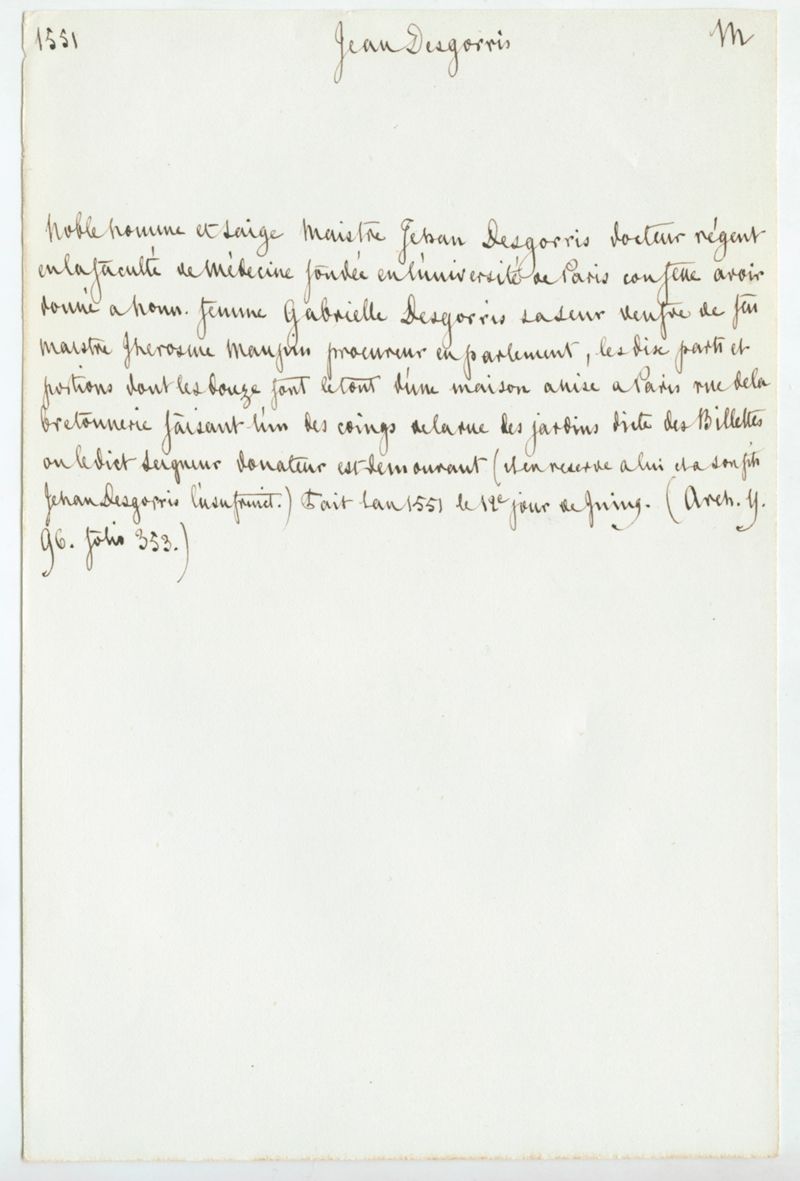 1551 Jean Desgorris M
Noble homme et saige Maistre Jehan Desgorris docteur régent
en la faculté de Médecine fondée en l'université de Paris confesse avoir
donné a honn. femme Gabrielle Desgorris sa seur veufve de feu
maistre Jherosme Maupin procureur en parlement, les dix parts et
portions dont les douze font le tout d'une maison assise a Paris rue de la
bretonnerie faisant l'un des coings de la rue des jardins dicte des Billettes
ou le dict seigneur donateur est demourant (et en reserve a lui et a son fils
Jehan Desgorris l'usufruict.) Fait l'an 1551 le 12e jour de Juing. (Arch. Y.
96. folio 353.)